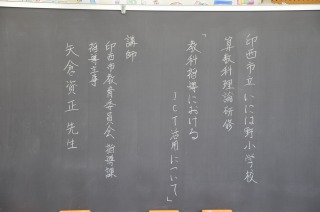 印西市立 いには野小学校
算数科理論研修
「教科指導における
ICT活用について」
講師
印西市教育委員会 指導課
指導主事
矢倉資正 先生